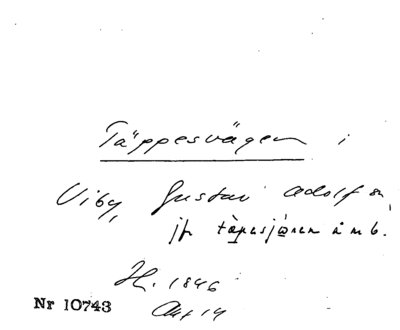 Täppesvägen i
Viby, Gustav Adolf sn,
jfr tä̀pesjǫnen å mb.
H. 1846
Akt 14
Nr 10743